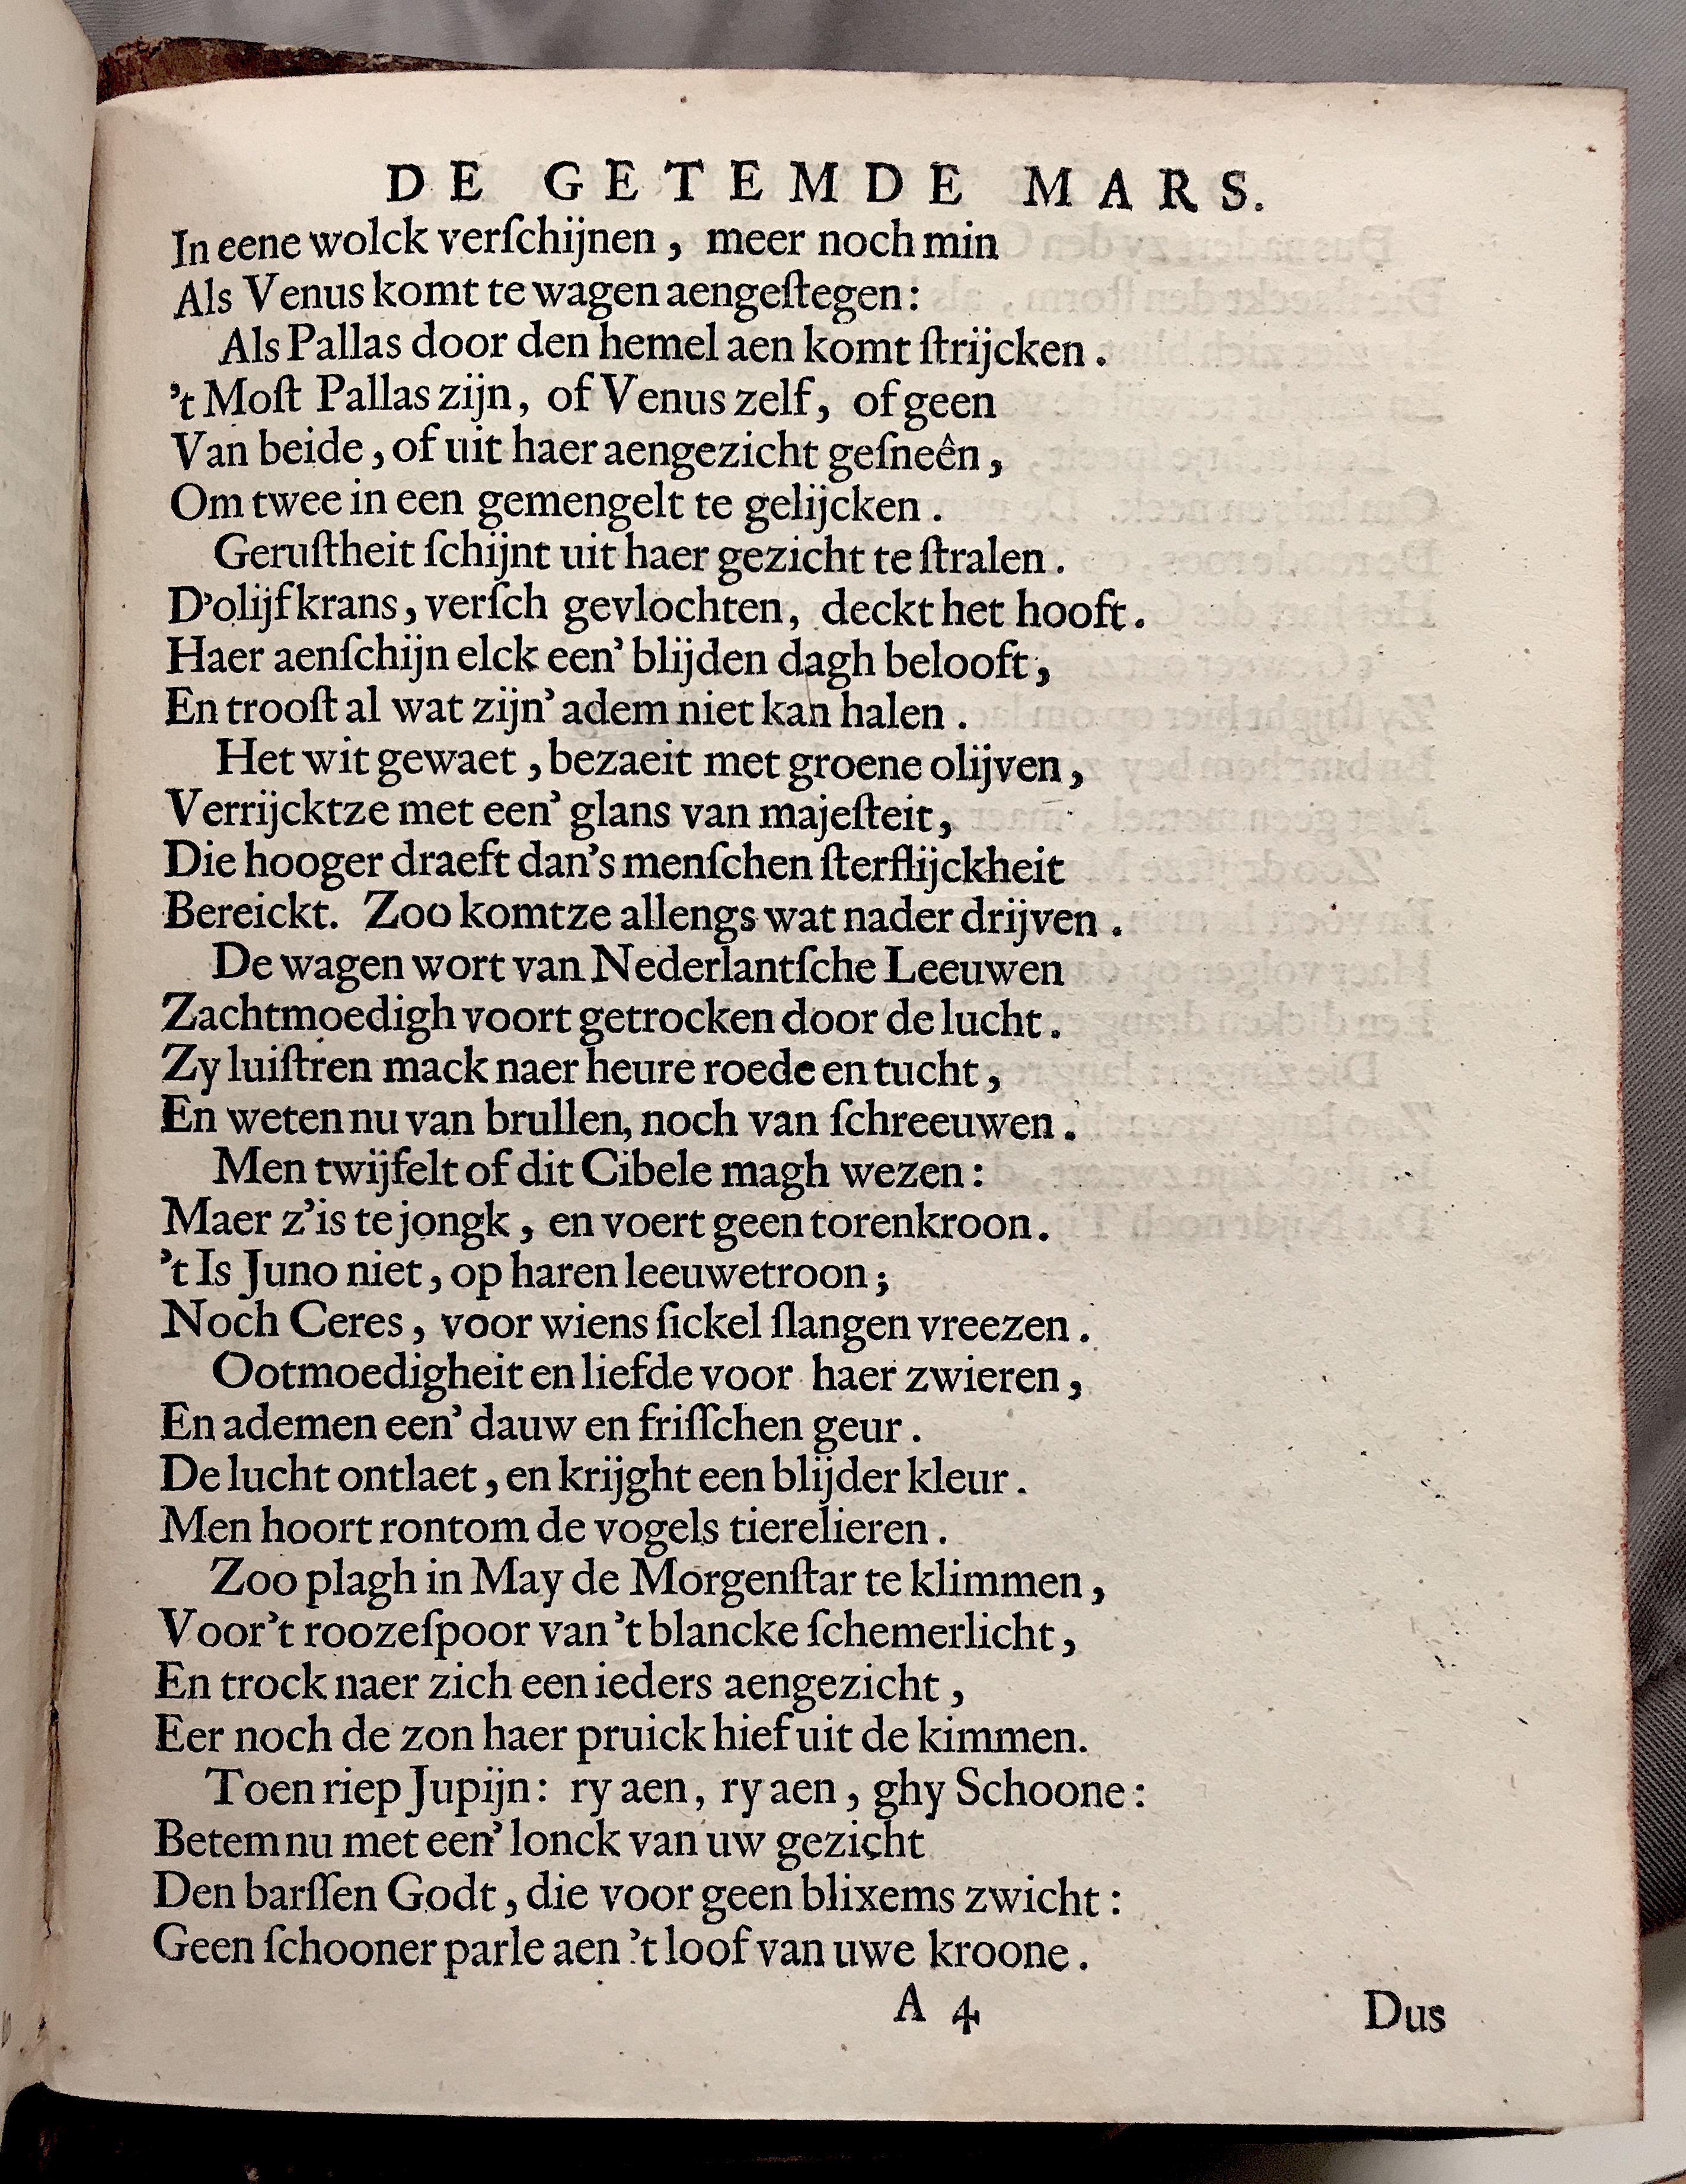 DE GETEMDE MARS.
In eene wolck verſchijnen, meer noch min
Als Venus komt te wagen aengeſtegen:
Als Pallas door den hemel aen komt ſtrijcken.
't Moſt Pallas zijn, of Venus zelf, of geen
Van beide, of uit haer aengezicht geſneên,
Om twee in een gemengelt te gelijcken.
Geruſtheit ſchijnt uit haer gezicht te ſtralen.
D'olijfkrans, verſch gevlochten, deckt het hooft.
Haer aenſchijn elck een' blijden dagh belooft,
En trooſt al wat zijn' adem niet kan halen.
Het wit gewaet, bezaeit met groene olijven,
Verrijcktze met een' glans van majeſteit,
Die hooger draeft dan's menſchen ſterflijckheit
Bereickt. Zoo komtze allengs wat nader drijven.
De wagen wort van Nederlantſche Leeuwen
Zachtmoedigh voort getrocken door de lucht.
Zy luiſtren mack naer heure roede en tucht,
En weten nu van brullen, noch van ſchreeuwen.
Men twijfelt of dit Cibele magh wezen:
Maer z'is te jongk, en voert geen torenkroon.
't Is Juno niet, op haren leeuwetroon;
Noch Ceres, voor wiens ſickel ſlangen vreezen.
Ootmoedigheit en liefde voor haer zwieren,
En ademen een' dauw en friſſchen geur.
De lucht ontlaet, en krijght een blijder kleur.
Men hoort rontom de vogels tierelieren.
Zoo plagh in May de Morgenſtar te klimmen,
Voor't roozeſpoor van 't blancke ſchemerlicht,
En trock naer zich een ieders aengezicht,
Eer noch de zon haer pruick hief uit de kimmen.
Toen riep Jupijn: ry aen, ry aen, ghy Schoone:
Betem nu met een' lonck van uw gezicht
Den barſſen Godt, die voor geen blixems zwicht:
Geen ſchooner parle aen 't loof van uwe kroone.
A 4 Dus